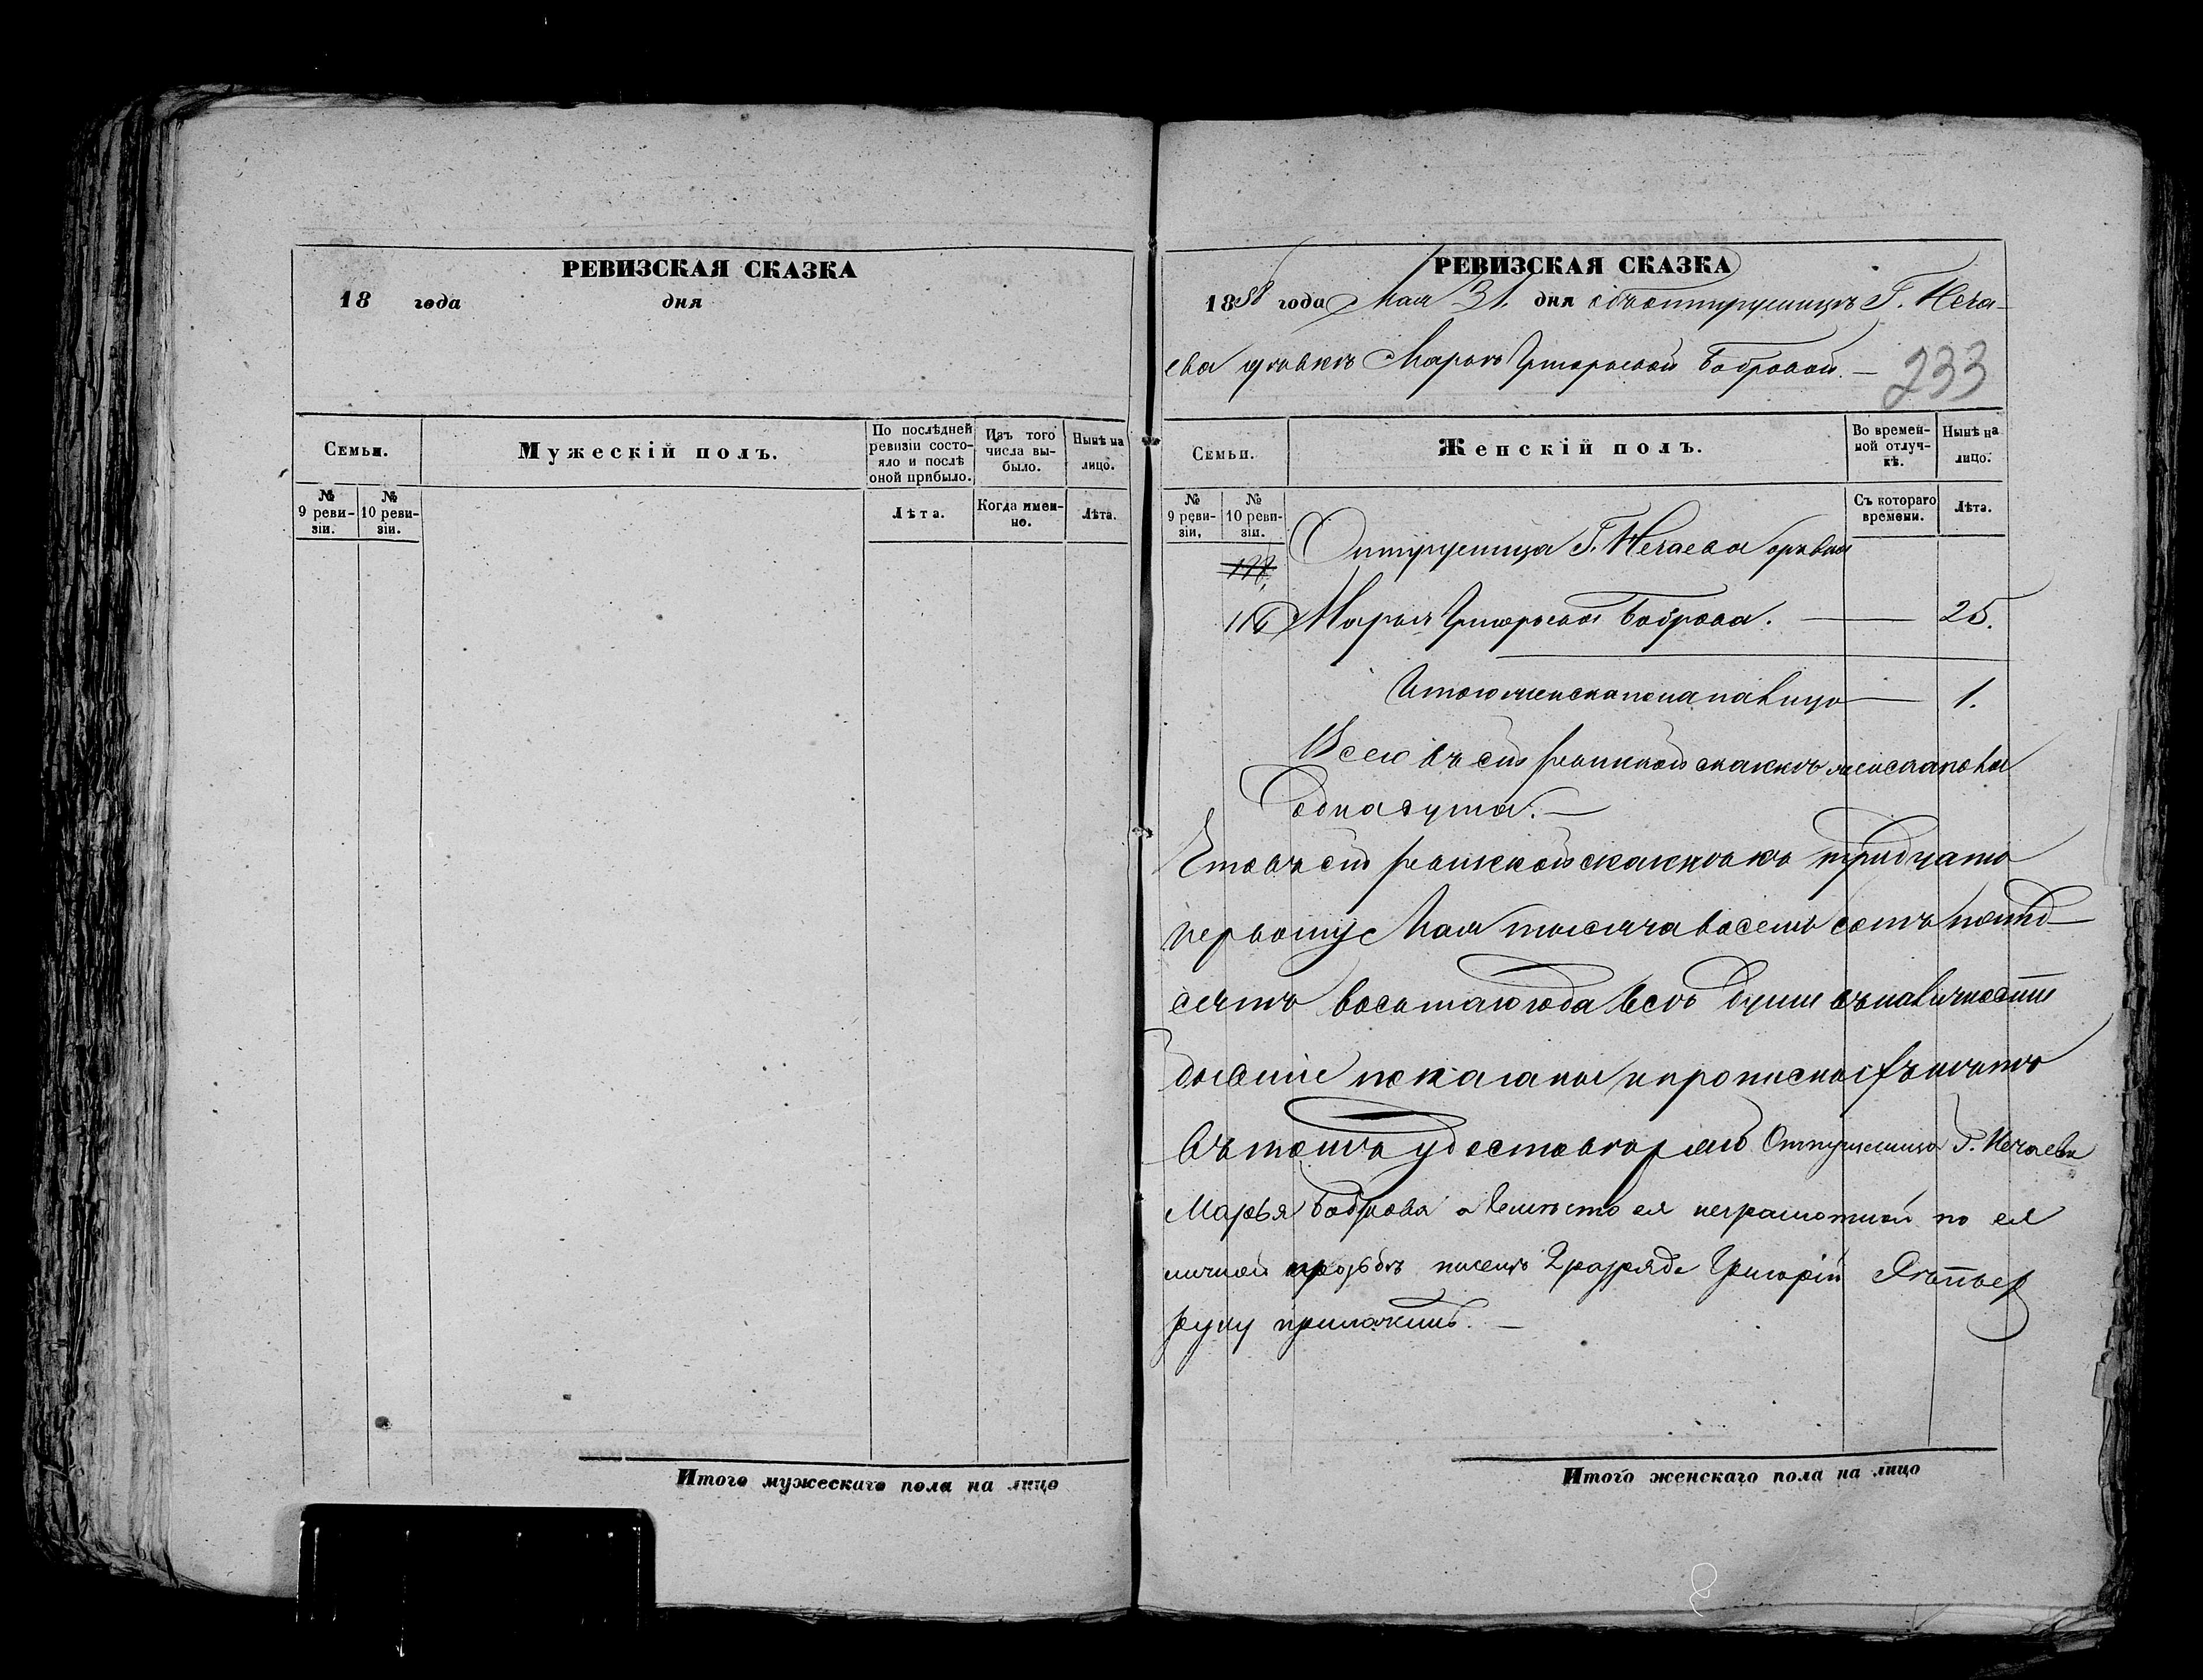 РЕВИЗСКАЯ СКАЗКА
18 года дня
Семьи.
Мужескій полъ.
По послѣдней ревизіи состояло и послѣ оной прибыло.
Изъ того числа выбыло.
Нынѣ на лицо.
№ 9 ревизіи.
№ 10 ревизіи.
Лѣта.
Когда именно.
Лѣта.
Итого мужескаго пола на лицо
РЕВИЗСКАЯ СКАЗКА
1858 года Мая 31 дня объ отпущеницѣ Г. Неча-
ева дѣвкѣ Марьѣ Григорьевой Бобровой. —
233
Семьи.
Женскій полъ.
Во временной отлучкѣ.
Нынѣ на лицо.
№ 9 ревизіи.
№ 10 ревизіи.
Съ котораго времени.
Лѣта.
Отпущеница Г. Нечаева дѣвка
116 Марья Григорьева Боброва. — 25.
Итого женска пола на лицо — 1.
Всего въ сей ревизкой сказкѣ женска пола
одна душа. —
Что въ сей ревизкой сказкѣ къ тридцать
первому Мая тысяча восемь сотъ пятьд-
сятъ восьмаго года всѣ души въ наличности
бывшіе показаны и прописныхъ нѣтъ
въ томъ удостовѣряю Отпущеница Г. Нечаева
Марья Боброва а вмѣсто ея неграмотной по ея
личной прозьбѣ писецъ 2 разряда Григорій
руку приложилъ. —
Итого женскаго пола на лицо